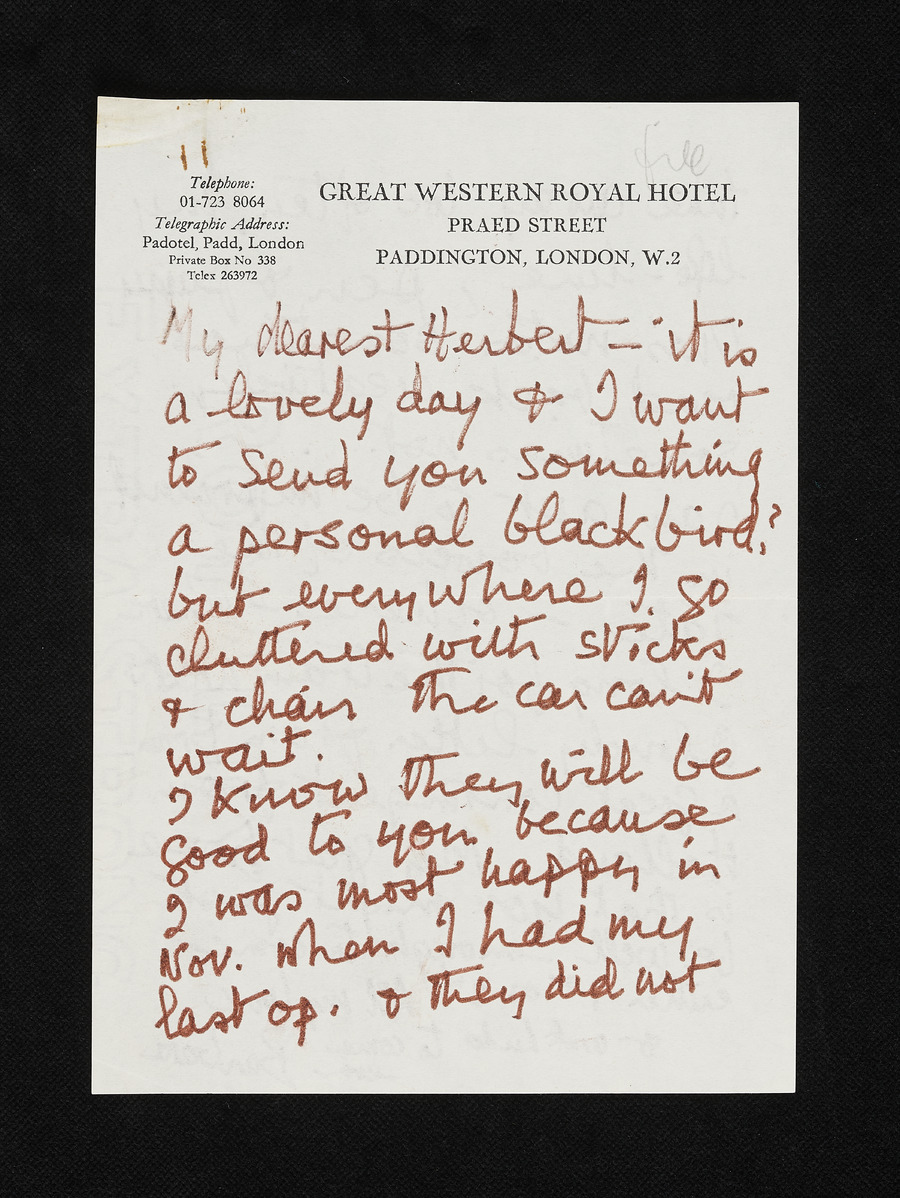 free
Telephone:
01-723 8064
Telegraphic Address:
Padotel, Padd, London
Private Box No 338
Telex 263972
GREAT WESTERN ROYAL HOTEL
PRAED STREET
PADDINGTON, LONDON, W.2
My dearest Herbert – it is
a lovely day & I want
to send you something
a personal blackbird?
but everywhere I go
cluttered with sticks
& chair the car can't
wait.
I know they will be
good to you because
I was most happy in
Nov. when I had my
last op. & they did not